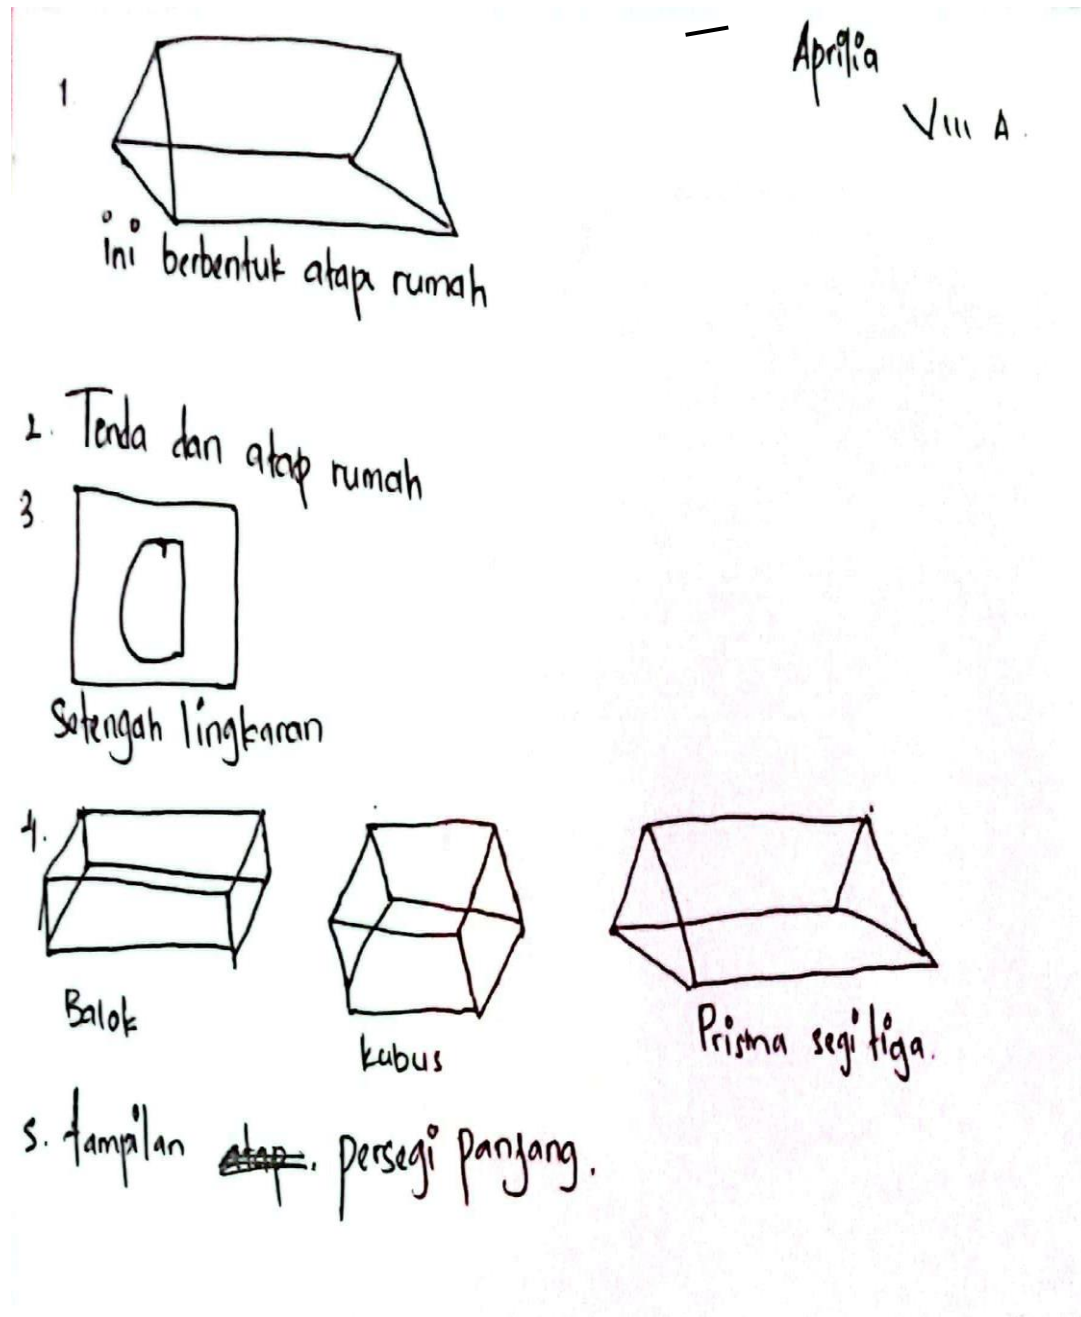 Aprilia
VIII A.
1.
ini berbentuk atap rumah
2. Tenda dan atap rumah
3.
Setengah lingkaran
4.
Balok
kubus
Prisma segitiga.
5. tampilan atap. persegi panjang.